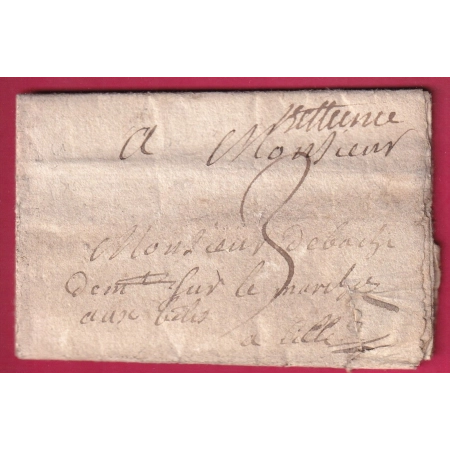 Bettune
A Monsieur
3
Monsieur debache
demt sur le marchez
aux
a Lille